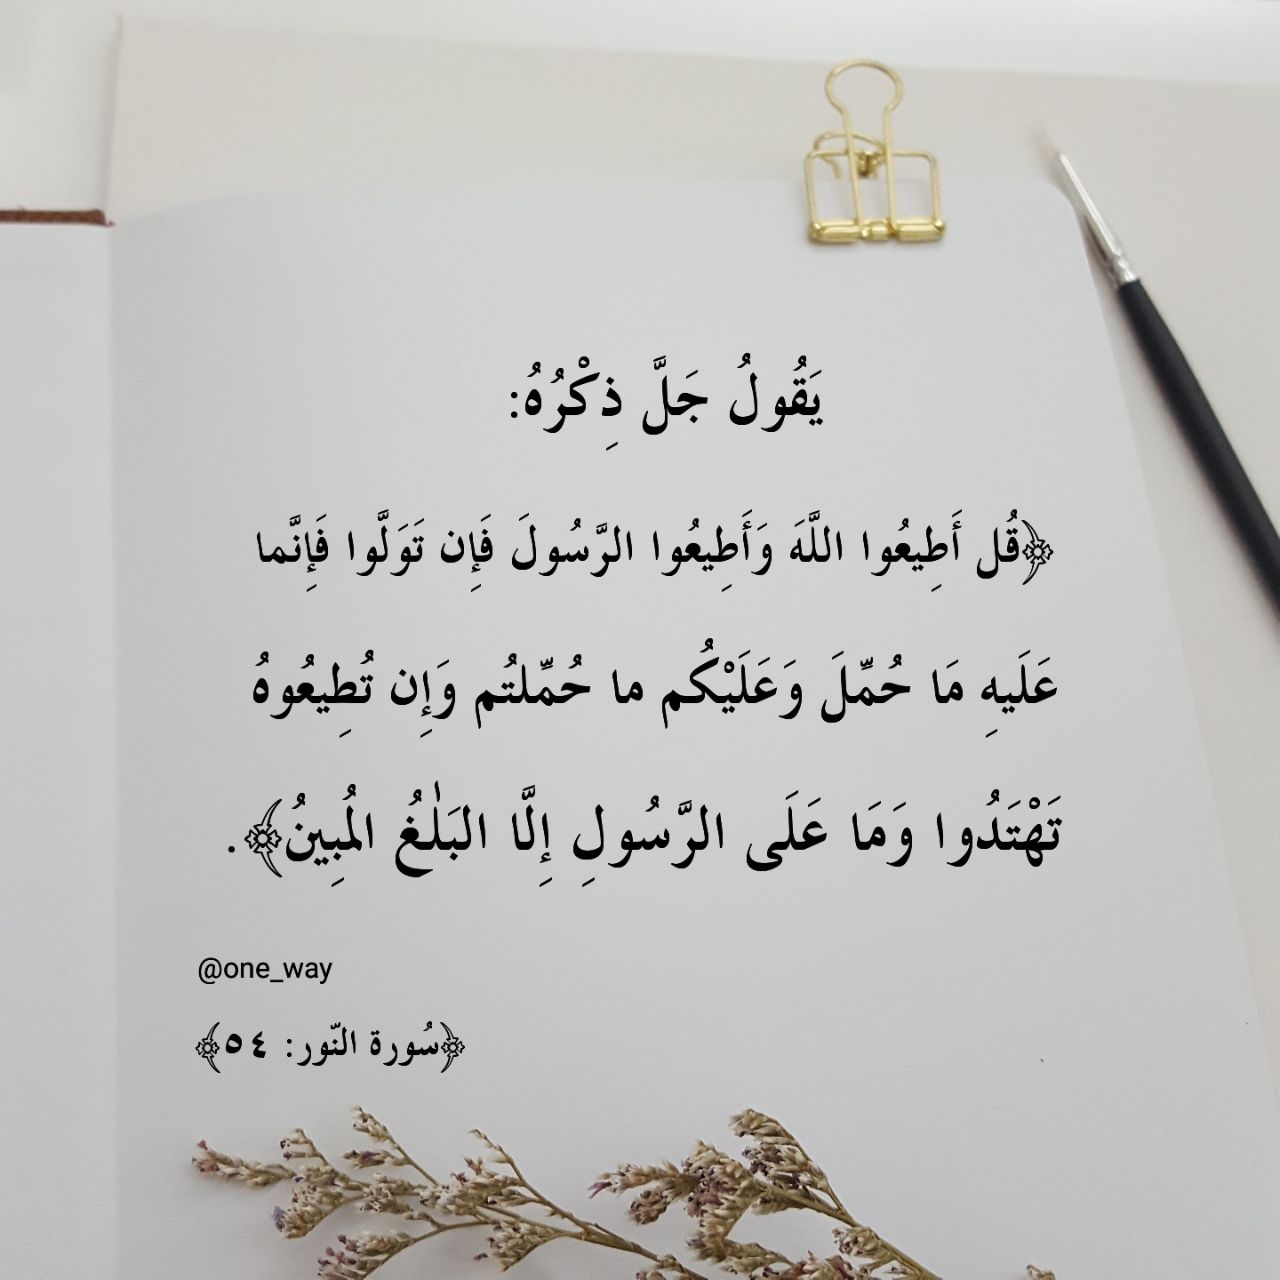 يَقُولُ جَلَّ ذِكْرُهُ:
﴿قُل أَطِيعُوا اللَّهَ وَأَطِيعُوا الرَّسُولَ فَإِن تَوَلَّوا فَإِنَّما
عَلَيهِ مَا حُمِّلَ وَعَلَيْكُم ما حُمِّلتُم وَإِن تُطِيعُوهُ
تَهْتَدُوا وَمَا عَلَى الرَّسُولِ إِلَّا البَلٰغُ المُبِينُ﴾.
@one_way
﴿سُورة النّور: ٥٤﴾